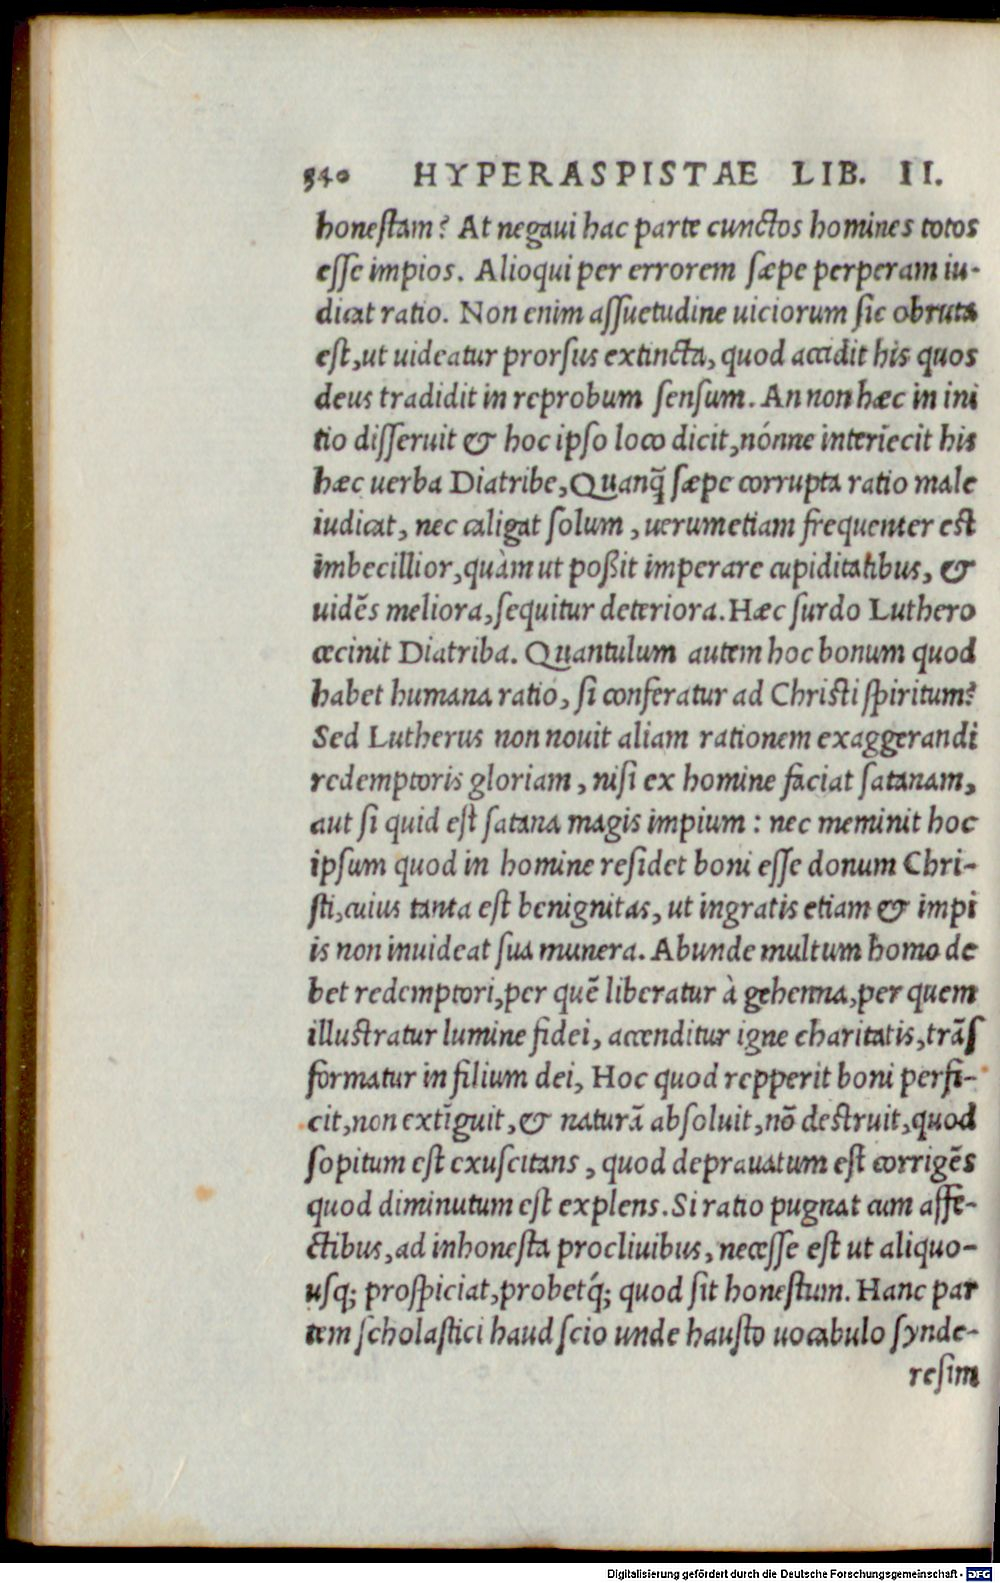 540 HYPERASPISTAE LIB. II.
honestam? At negaui hac parte cunctos homines totos
esse impios. Alioqui per errorem sæpe perperam iu-
dicat ratio. Non enim assuetudine uiciorum sic obruta
est, ut uideatur prorsus extincta, quod accidit his quos
deus tradidit in reprobum sensum. An non hæc in ini
tio disseruit & hoc ipso loco dicit, nónne interiecit his
hæc uerba Diatribe, Quanq̃ sæpe corrupta ratio male
iudicat, nec caligat solum, uerumetiam frequenter est
imbecillior, quàm ut poßit imperare cupiditatibus, &
uidẽs meliora, sequitur deteriora. Hæc surdo Luthero
cecinit Diatriba. Quantulum autem hoc bonum quod
habet humana ratio, si conferatur ad Christi spiritum?
Sed Lutherus non nouit aliam rationem exaggerandi
redemptoris gloriam, nisi ex homine faciat satanam,
aut si quid est satana magis impium: nec meminit hoc
ipsum quod in homine residet boni esse donum Chri-
sti, cuius tanta est benignitas, ut ingratis etiam & impi
is non inuideat sua munera. Abunde multum homo de
bet redemptori, per quẽ liberatur à gehenna, per quem
illustratur lumine fidei, accenditur igne charitatis, trãs
formatur in filium dei, Hoc quod repperit boni perfi-
cit, non extĩguit, & naturã absoluit, nõ destruit, quod
sopitum est exuscitans, quod deprauatum est corrigẽs
quod diminutum est explens. Si ratio pugnat cum affe-
ctibus, ad inhonesta procliuibus, necesse est ut aliquo-
usq; prospiciat, probetq́; quod sit honestum. Hanc par
tem scholastici haud scio unde hausto uocabulo synde-
resim
Digitalisierung gefördert durch die Deutsche Forschungsgemeinschaft - DFG